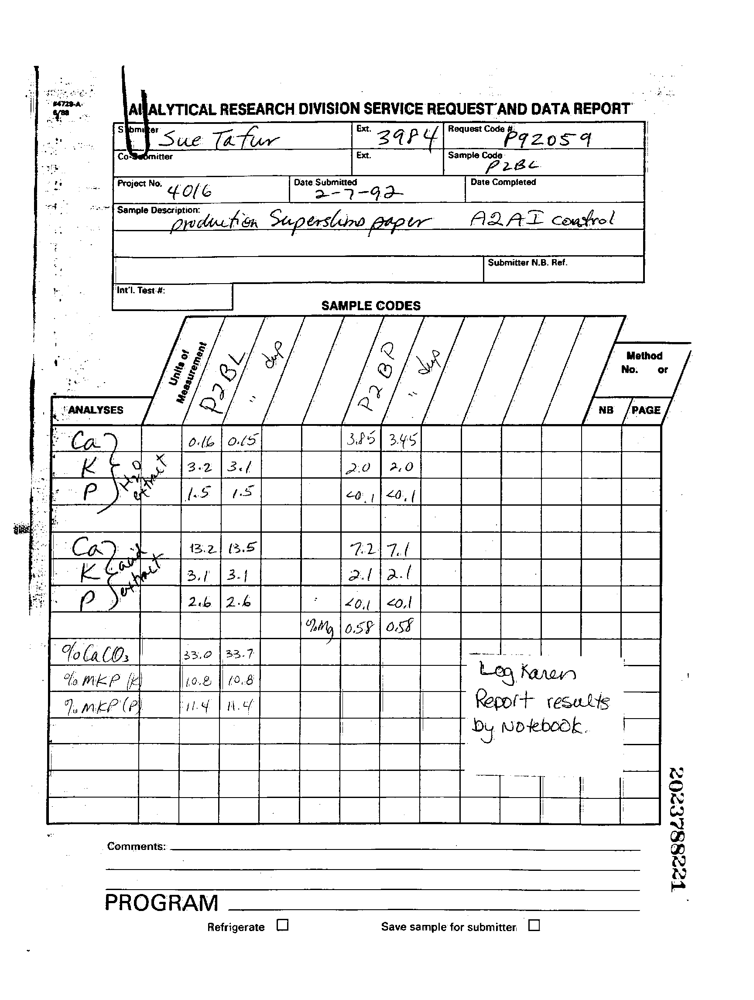 #4729-A
ANALYTICAL RESEARCH DIVISION SERVICE REQUEST AND DATA REPORT
Submitter Sue Tafur Ext. 3984 Request Code # P92059
Co-Submitter Ext. Sample Code P2BL
Project No. 4016 Date Submitted 2-7-92 Date Completed
Sample Description: production Superslims paper A2AI control
Submitter N.B. Ref.
Int'l. Test #:
SAMPLE CODES
ANALYSES Units of Measurement P2BL " dup P2BP " dup Method No. or
NB PAGE
Ca 0.16 0.15 3.85 3.45
K H2O extract 3.2 3.1 2.0 2.0
P 1.5 1.5 <0.1 <0.1
Ca 13.2 13.5 7.2 7.1
K acid extract 3.1 3.1 2.1 2.1
P 2.6 2.6 <0.1 <0.1
%Mg 0.58 0.58
% CaCO3 33.0 33.7
% MKP (K) 10.8 10.8
% MKP (P) 11.4 11.4
Log Karen
Report results
by Notebook.
2023788221
Comments:
PROGRAM
Refrigerate Save sample for submitter